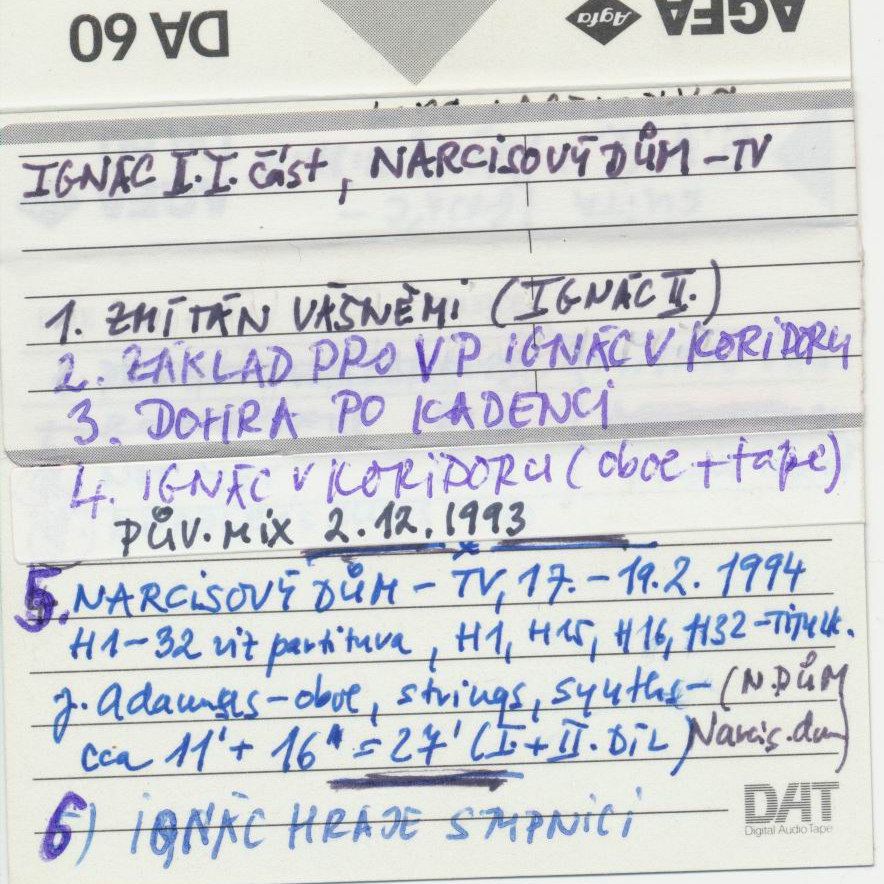 DA 60
Agfa
AGFA
IGNÁC I. I. část, NARCISOVÝ DŮM - TV
1. ZMÍTÁN VÁŠNĚMI (IGNÁC II.)
2. ZÁKLAD PRO VP IGNÁC V KORIDORU
3. DOHRA PO KADENCI
4. IGNÁC V KORIDORU (oboe + tape)
PŮV. MIX 2.12.1993
5. NARCISOVÝ DŮM - TV, 17. - 19.2. 1994
H1-32 viz partitura, H1, H15, H16, H32 - Titulk.
J. Adamus - oboe, strings, synths - (N. DŮM
cca 11' + 16" = 27' (I. + II. DÍL) Narcis. dům)
6) IGNÁC HRAJE
DAT
Digital Audio Tape